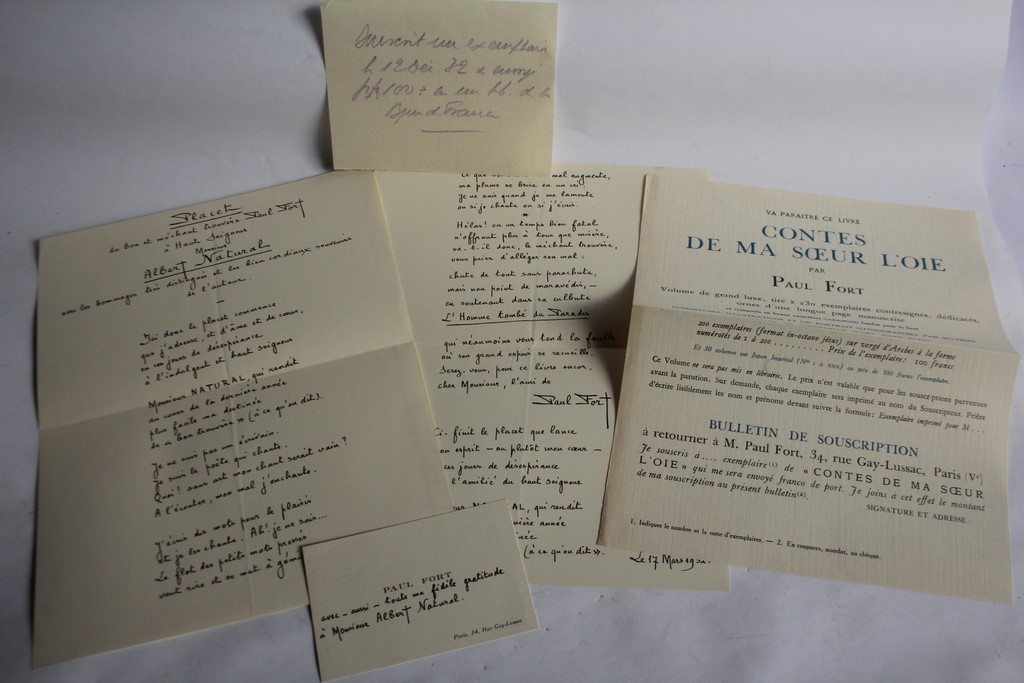 Souscrit un exemplaire
le 12 Déc. 32 & envoyé
100 : en un bt. de la
Bque de France
Placet
du bon et méchant trouvère Paul Fort
à Haut Seigneur
Monsieur
Albert Natural
avec les hommages très distingués et les bien cordiaux souvenirs
de l'auteur.
Ici donc le placet commence
que j'adresse, et d'âme et de cœur,
en ces jours de désespérance
à l'indulgent et haut seigneur
Monsieur NATURAL, qui rendit
au cours de la dernière année
plus haute ma destinée
de « bon trouvère » (à ce qu'on dit).
Je ne suis pas un écrivain.
Je suis le poète qui chante.
Quoi! sans art mon chant serait vain?
A l'écouter, mon mal j'enchante.
J'écris des mots pour le plaisir
et je les chante. Ah! je ne sais...
Le flot des petits mots pressés
veut rire et se met à
ce que mal augmente,
ma plume se brise en un cri.
Je ne sais quand je me lamente
ou si je chante ou si j'écris.
*
Hélas! en un temps bien fatal
n'offrant plus à tous que misère,
va-t-il donc, le méchant trouvère,
vous prier d'alléger son mal:
chute de tout sans parachute,
mais non point de maravédis, —
en soutenant dans sa culbute
L'Homme tombé du Paradis
qui néanmoins vous tend la feuille
où son grand espoir se recueille.
Serez-vous, pour ce livre encor,
cher Monsieur, l'ami de
Paul Fort
Ci-finit le placet que lance
mon esprit — ou plutôt mon cœur —
ces jours de désespérance
l'amitié du haut seigneur
NATURAL, qui rendit
dernière année
(à ce qu'on dit ».
Le 17 Mars 1932.
VA PARAITRE CE LIVRE
CONTES
DE MA SŒUR L'OIE
PAR
PAUL FORT
Volume de grand luxe, tiré à 230 exemplaires contresignés, dédicacés,
ornés d'une longue page manuscrite
200 exemplaires (format in-octavo jésus) sur vergé d'Arches à la forme
numérotés de 1 à 200 . . . . . . . . . Prix de l'exemplaire: 100 francs
Et 30 volumes sur Japon Impérial (Nos 1 à XXX) au prix de 300 francs l'exemplaire.
Ce Volume ne sera pas mis en librairie. Le prix n'est valable que pour les souscriptions parvenues
avant la parution. Sur demande, chaque exemplaire sera imprimé au nom du Souscripteur. Prière
d'écrire lisiblement les nom et prénoms devant suivre la formule: Exemplaire imprimé pour M . . .
BULLETIN DE SOUSCRIPTION
à retourner à M. Paul Fort, 34, rue Gay-Lussac, Paris (Ve)
Je souscris à.... exemplaire(1) de « CONTES DE MA SŒUR
L'OIE » qui me sera envoyé franco de port. Je joins à cet effet le montant
de ma souscription au présent bulletin(2).
SIGNATURE ET ADRESSE :
1. Indiquer le nombre et la sorte d'exemplaires. — 2. En coupures, mandat, ou chèque.
PAUL FORT
avec - aussi - toute ma fidèle gratitude
à Monsieur Albert Natural.
Paris, 34, Rue Gay-Lussac